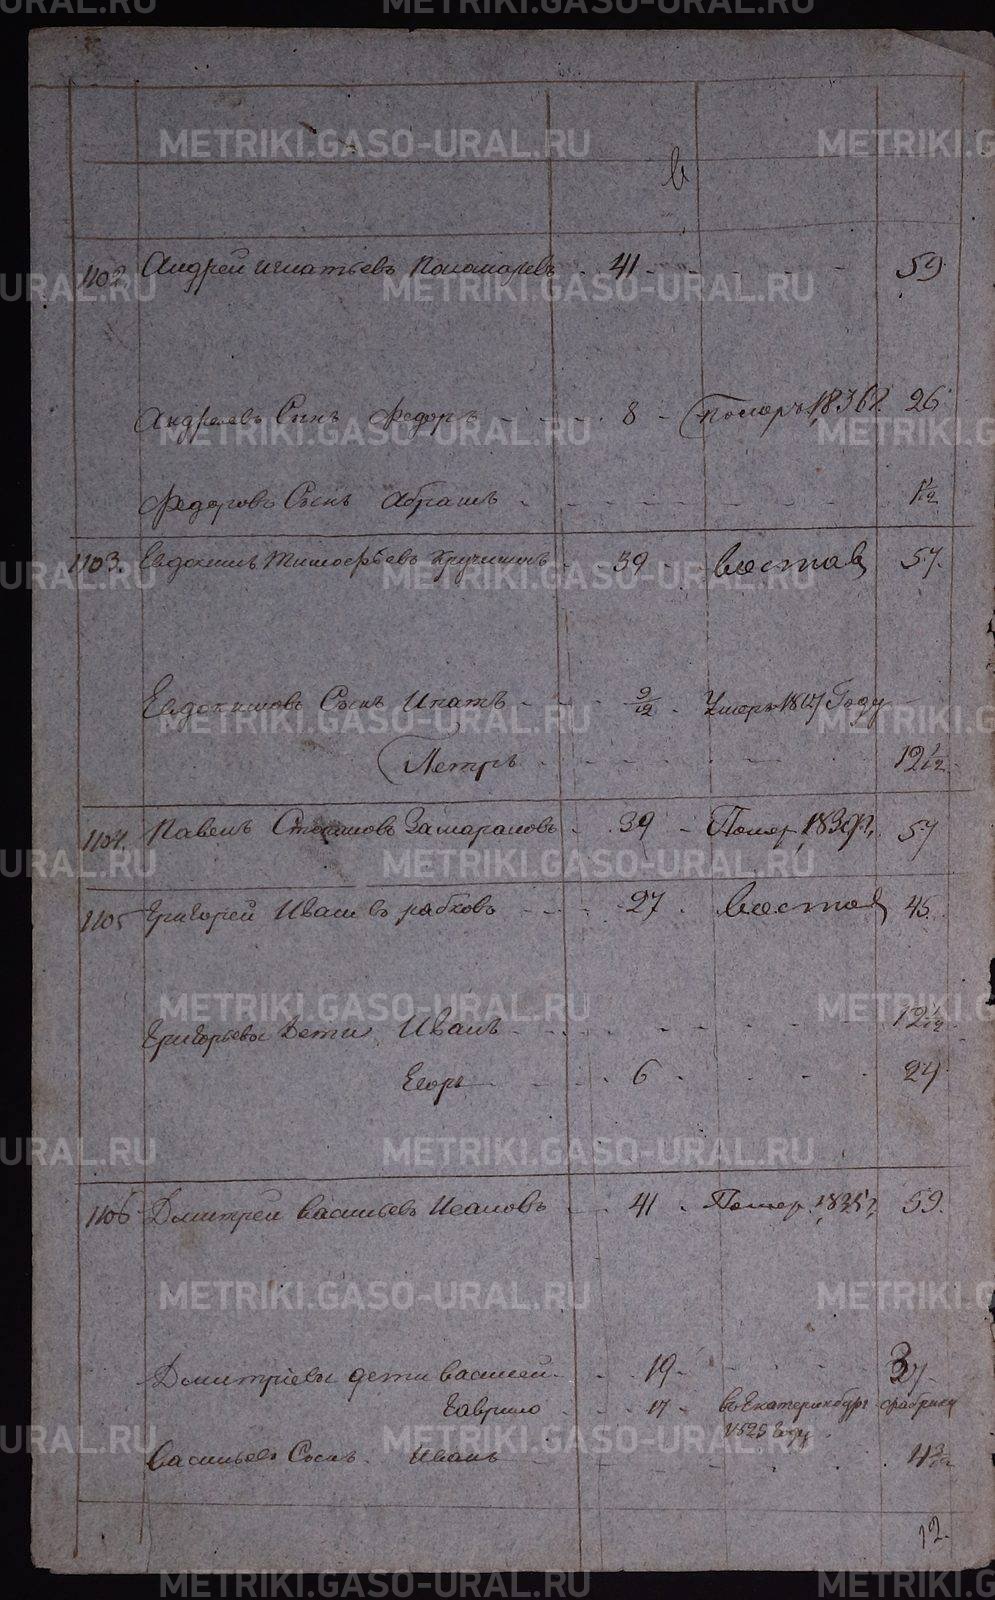 в
1102 Андрей игнатьевъ Пономаревъ 41 59
Андреевъ Сынъ Федоръ 8 Помер 1836г. 26
Федоровъ Сынъ Абрамъ 1/12
1103. Евдокимъ Тимофѣевъ Кручининъ 39 57.
Евдокимовъ Сынъ Ипатъ 9/12 Умеръ 1817 Году
Петръ 12 1/12
1104. Павелъ Степановъ 39 Помер. 57
1105 Григорей Ивановъ рябковъ 27 45.
Григорьевы Дети Иванъ 12 1/12
Егоръ 6 24
1106 Дмитрей васильевъ Исаковъ 41 Помер. 1835г. 59.
Дмитріевы дети василей 19 37
Гаврило 17 въ Екатеринбург фабрику
1825 Году
васильевъ Сынъ Иванъ
12.
METRIKI.GASO-URAL.RU